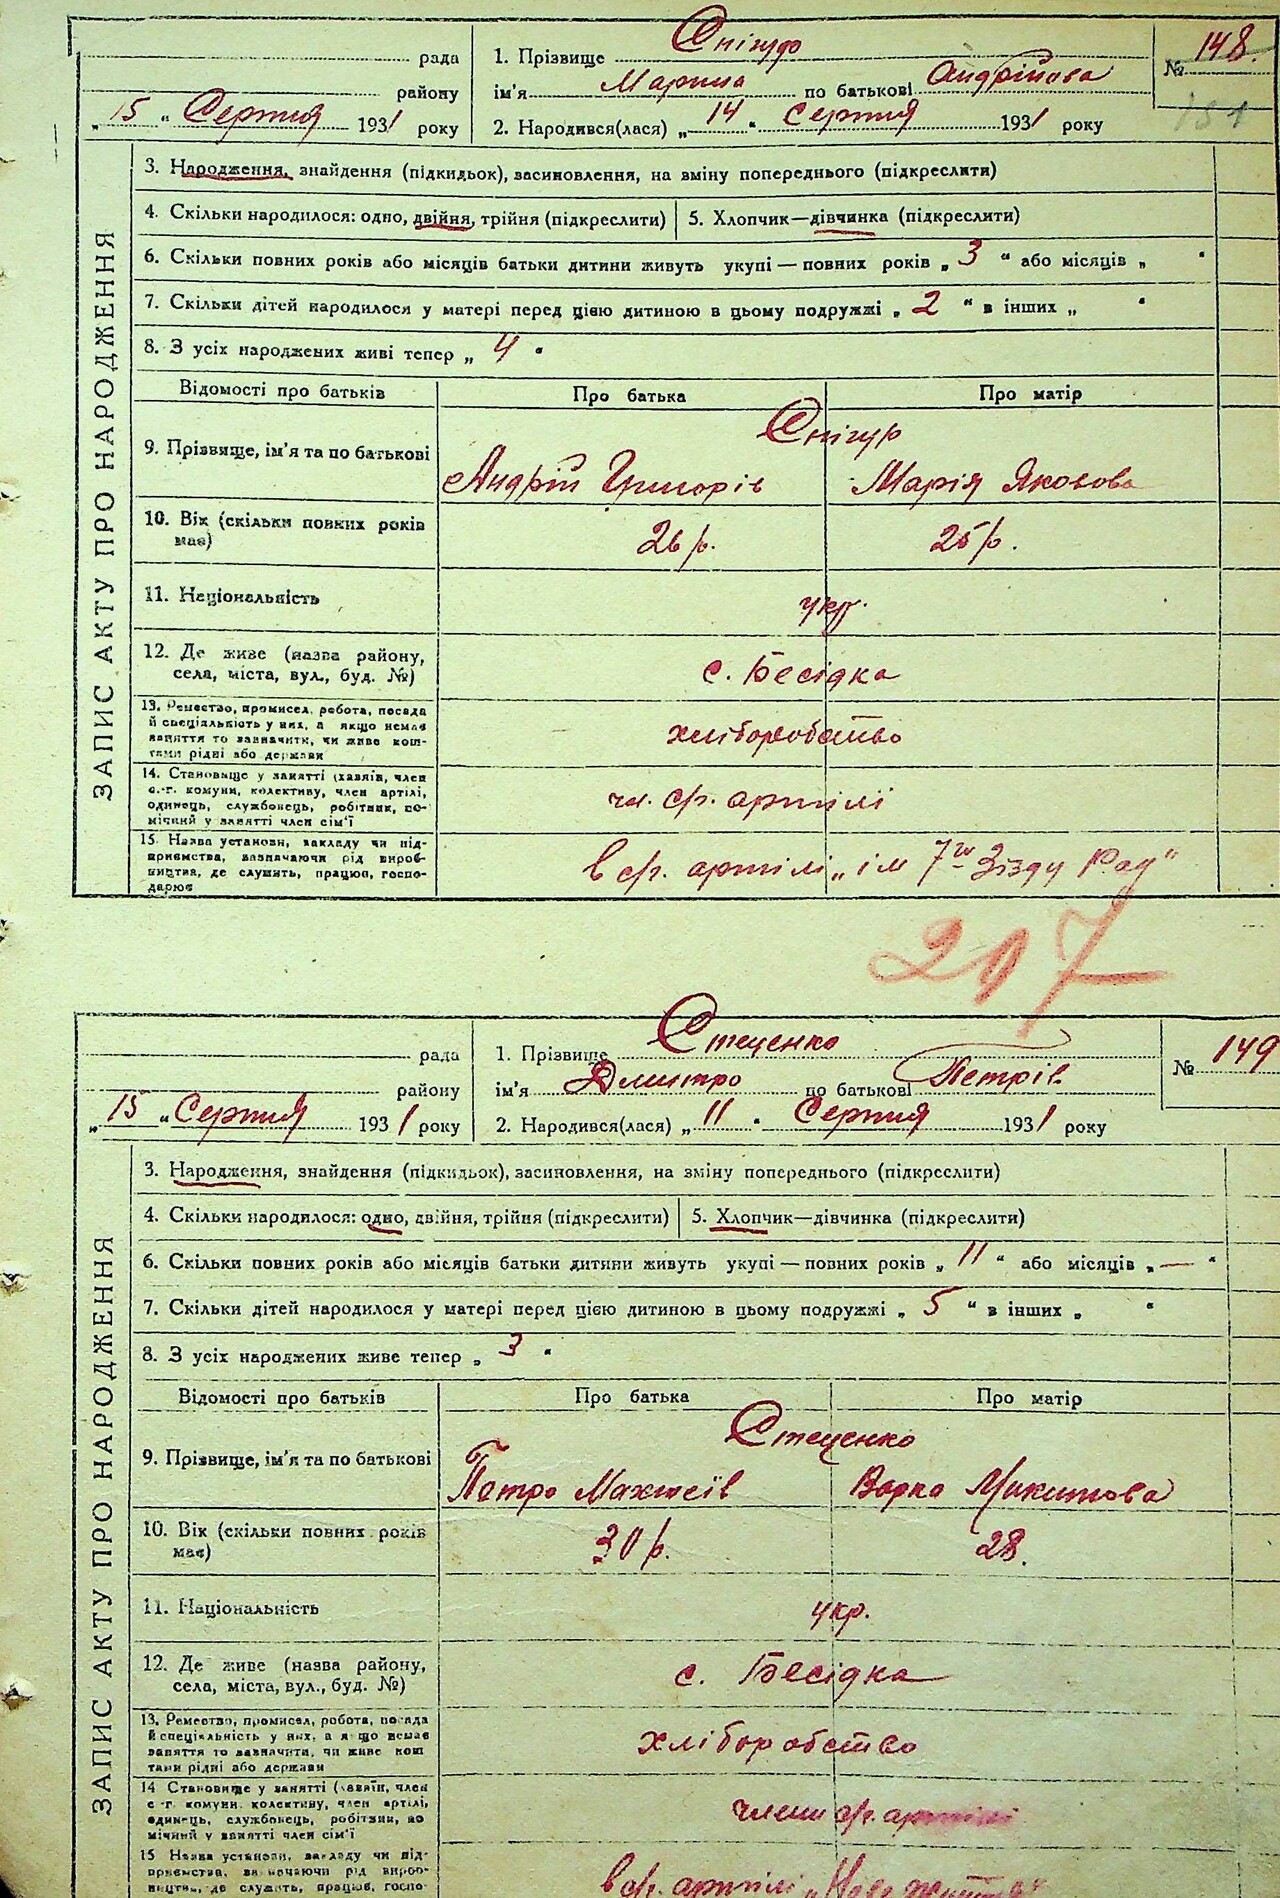 рада
району
„ 15 “ Серпня 1931 року
1. Прізвище Снігур
ім'я Марина по батькові Андрійова
2. Народився(лася) „ 14 “ Серпня 1931 року
№ 148.
151
ЗАПИС АКТУ ПРО НАРОДЖЕННЯ
3. Народження, знайдення (підкидьок), засиновлення, на зміну попереднього (підкреслити)
4. Скільки народилося: одно, двійня, трійня (підкреслити) 5. Хлопчик—дівчинка (підкреслити)
6. Скільки повних років або місяців батьки дитини живуть укупі — повних років „ 3 “ або місяців „ “
7. Скільки дітей народилося у матері перед цією дитиною в цьому подружжі „ 2 “ в інших „ “
8. З усіх народжених живі тепер „ 4 “
Відомості про батьків Про батька Про матір
9. Прізвище, ім'я та по батькові
Снігур
Андрій Григорів Марія Яковова
10. Вік (скільки повних років
має)
26 р. 25 р.
11. Національність укр.
12. Де живе (назва району,
села, міста, вул., буд. №)
с. Бесідка
13. Ремество, промисел, робота, посада
й спеціальність у них, а якщо немає
заняття то зазначити, чи живе кош-
тами рідні або держави
хліборобство
14. Становище у занятті (хазяїн, член
с.-г. комуни, колективу, член артілі,
одинець, службовець, робітник, по-
мічний у занятті член сім'ї
чл. с/г. артілі
15. Назва установи, закладу чи під-
приємства, зазначаючи рід вироб-
ництва, де служить, працює, госпо-
дарює
в с/г. артілі „ім 7го Зізду Рад“
207
рада
району
„ 15 “ Серпня 1931 року
1. Прізвище Стеценко
ім'я Дмитро по батькові Петрів
2. Народився(лася) „ 11 “ Серпня 1931 року
№ 149
ЗАПИС АКТУ ПРО НАРОДЖЕННЯ
3. Народження, знайдення (підкидьок), засиновлення, на зміну попереднього (підкреслити)
4. Скільки народилося: одно, двійня, трійня (підкреслити) 5. Хлопчик—дівчинка (підкреслити)
6. Скільки повних років або місяців батьки дитини живуть укупі — повних років „ 11 “ або місяців „ — “
7. Скільки дітей народилося у матері перед цією дитиною в цьому подружжі „ 5 “ в інших „ “
8. З усіх народжених живе тепер „ 3 “
Відомості про батьків Про батька Про матір
9. Прізвище, ім'я та по батькові
Стеценко
Петро Махтеїв Варка Микитова
10. Вік (скільки повних років
має)
30 р. 28.
11. Національність укр.
12. Де живе (назва району,
села, міста, вул., буд. №)
с. Бесідка
13. Ремество, промисел, робота, посада
й спеціальність у них, а якщо немає
заняття то зазначити, чи живе кош
тами рідні або держави
хліборобство
14 Становище у занятті (хазяїн, член
с-г. комуни, колективу, член артілі,
одинець, службовець, робітник, по
мічний у занятті член сім'ї
члени с/г. артілі
15 Назва установи, закладу чи під-
приємства, зазначаючи рід вироб-
ництва, де служить, працює, госпо-
в с/г. артілі „Нове життя“